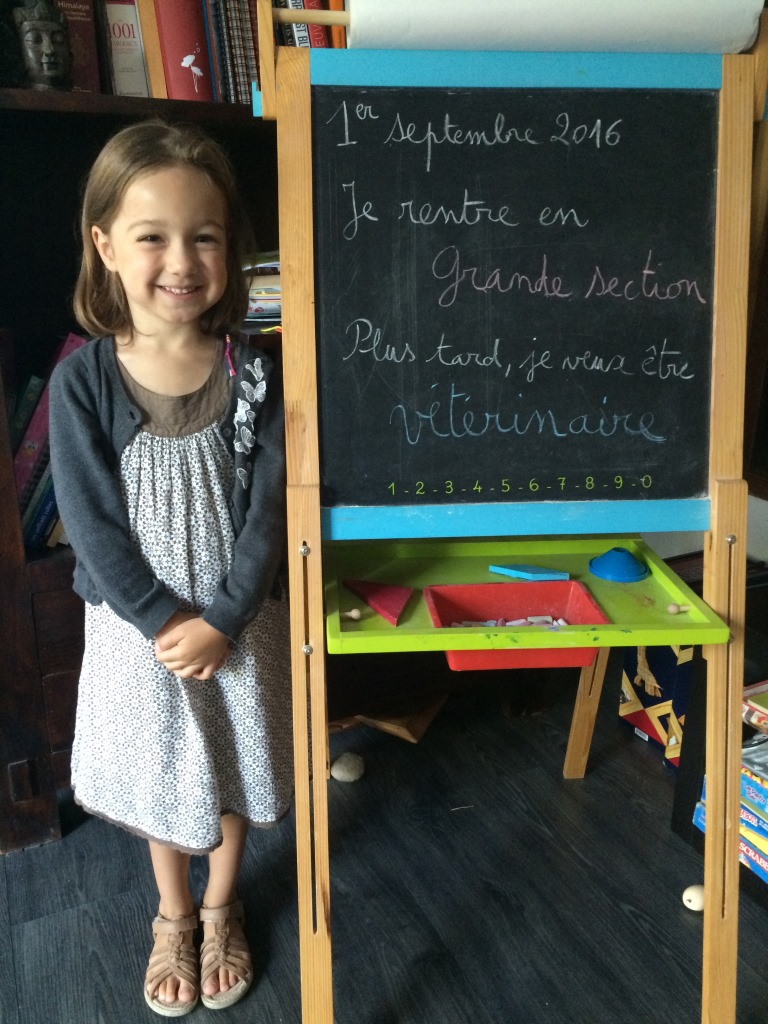 Himalaya
1001
1er septembre 2016
Je rentre en
Grande section
Plus tard, je veux être
vétérinaire
1-2-3-4-5-6-7-8-9-0